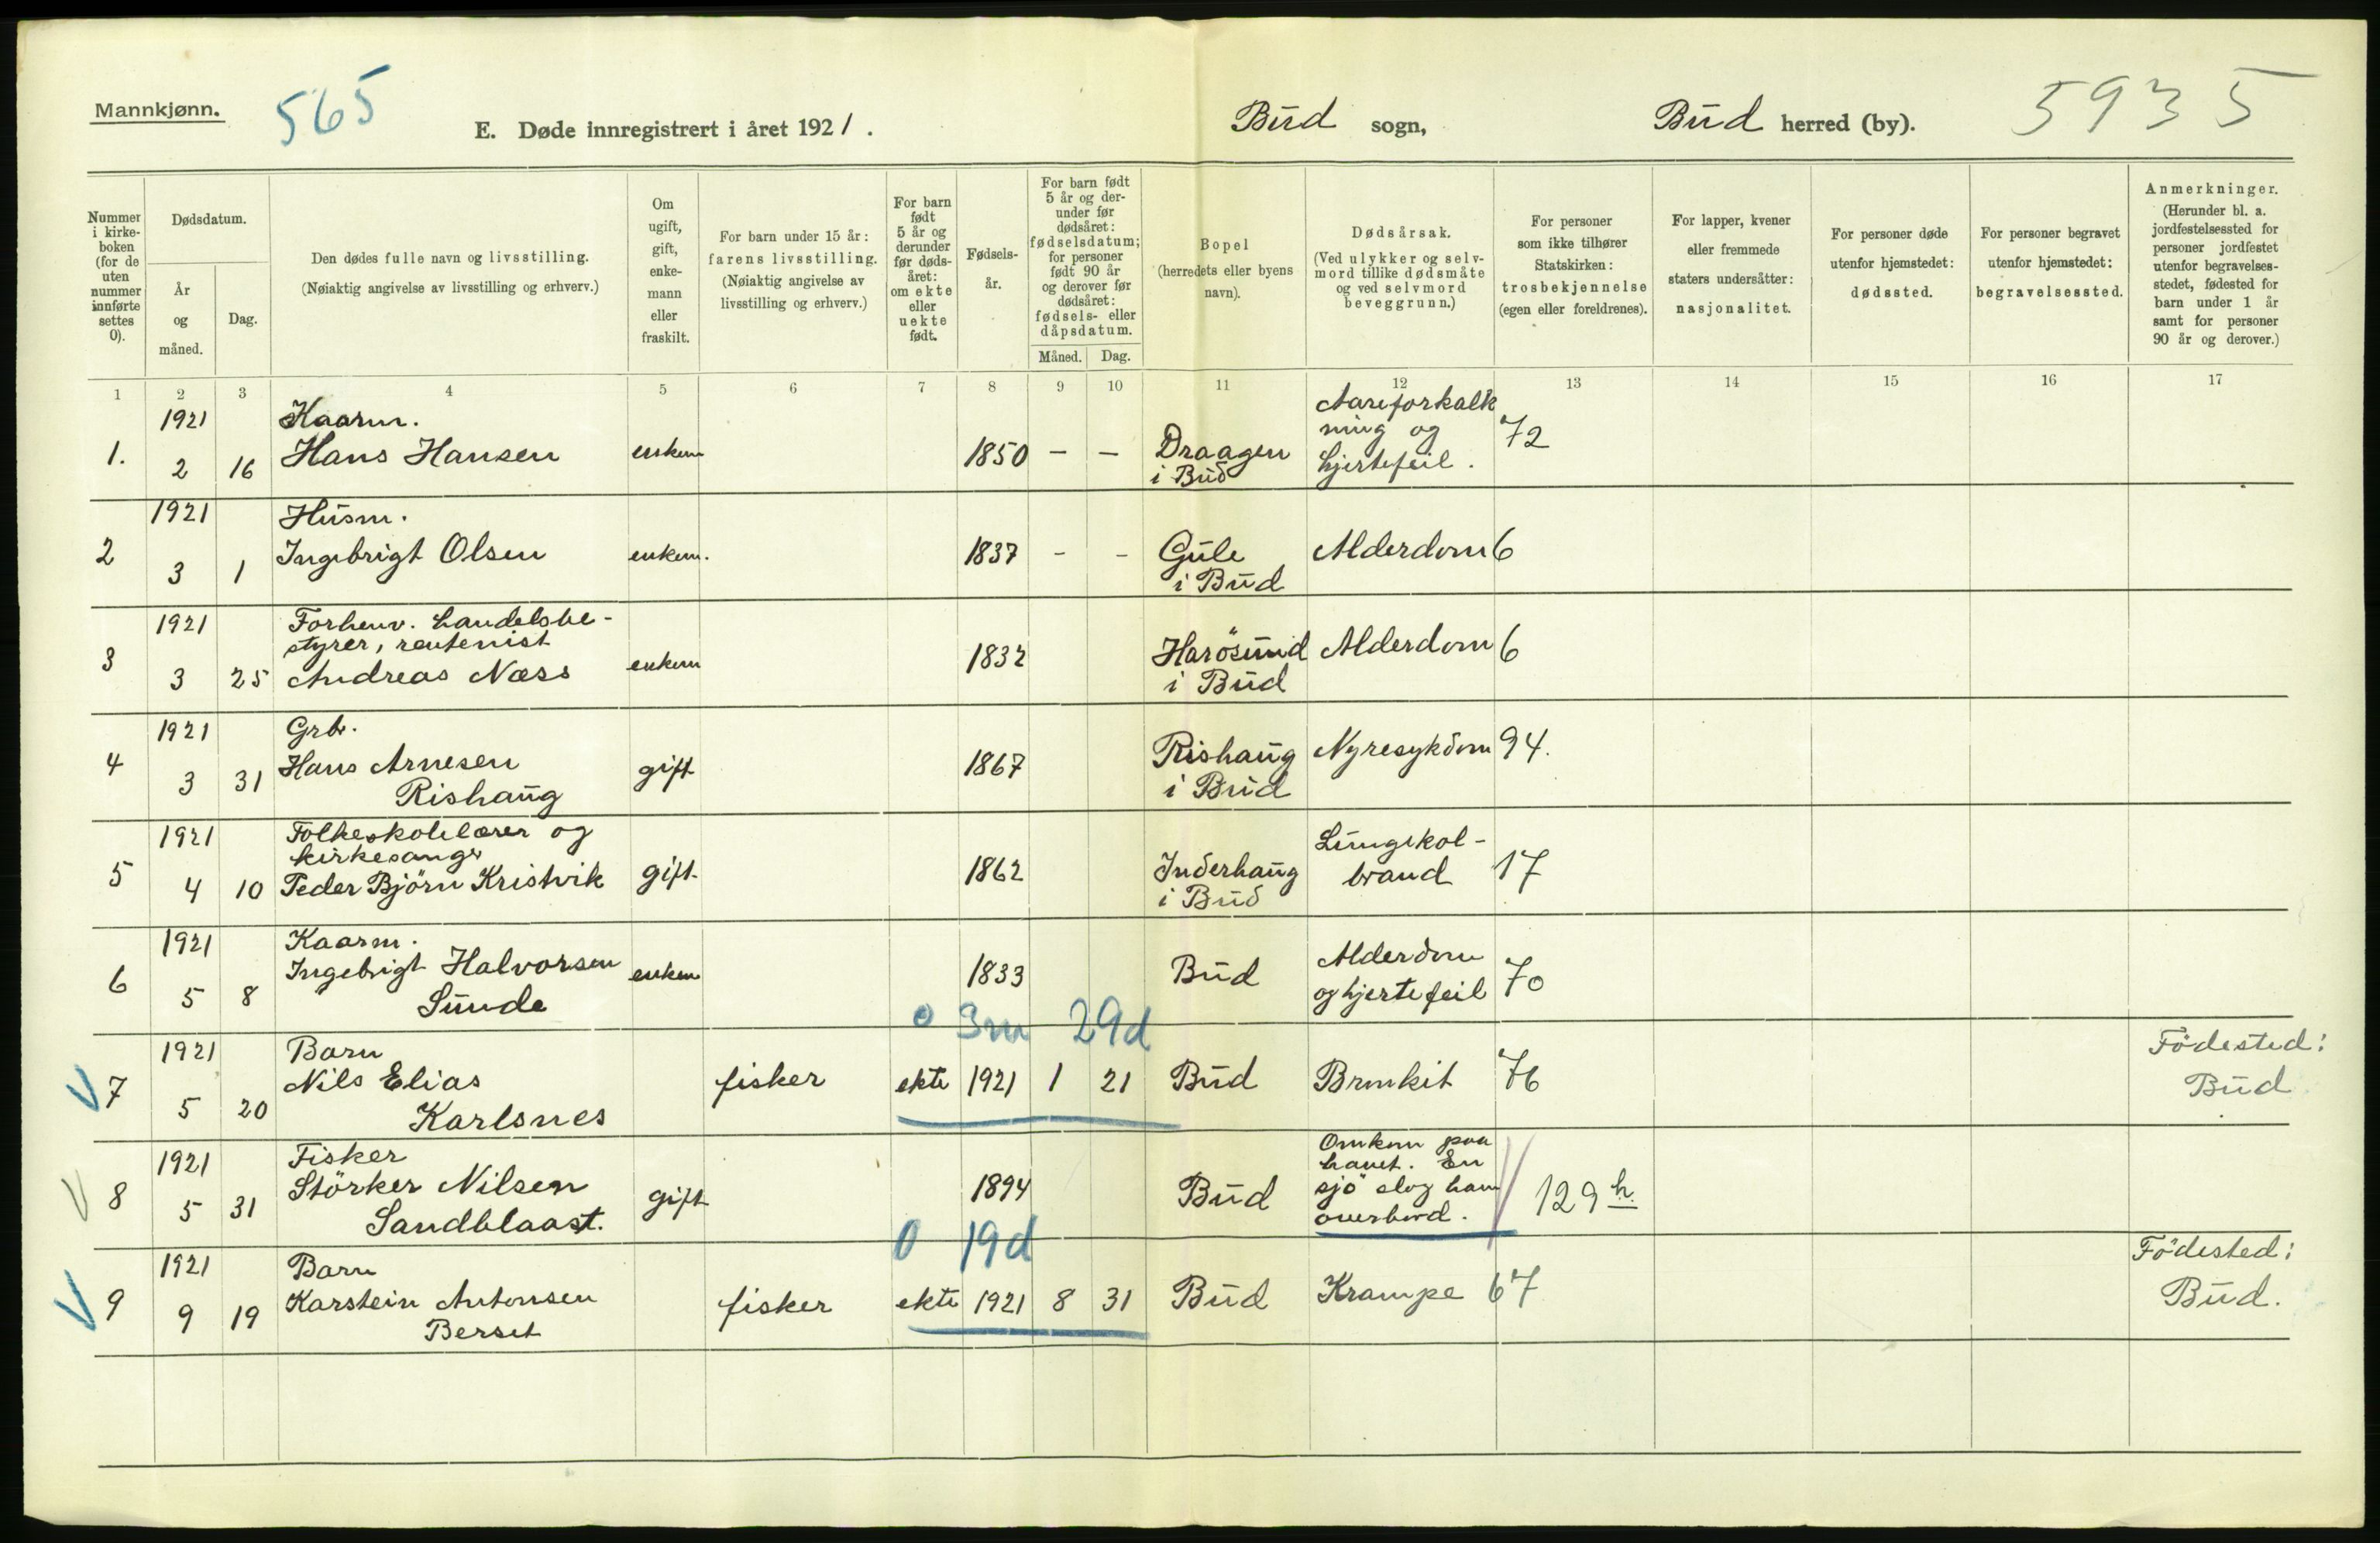 Mannkjønn.
565
E. Døde innregistrert i året 1921.
Bud sogn,
Bud herred (by).
5935
Nummer i kirke- boken (for de uten nummer innførte settes 0).
Dødsdatum.
År og måned.
Dag.
Den dødes fulle navn og livsstilling.
(Nøiaktig angivelse av livsstilling og erhverv.)
Om ugift, gift, enke- mann eller fraskilt.
For barn under 15 år: farens livsstilling.
(Nøiaktig angivelse av livsstilling og erhverv.)
For barn født 5 år og derunder før døds- året: om ekte eller uekte født.
Fødsels- år.
For barn født 5 år og der- under før dødsåret: fødselsdatum; for personer født 90 år og derover før dødsåret: fødsels- eller dåpsdatum.
Måned. Dag.
Bopel
(herredets eller byens navn).
Dødsårsak.
(Ved ulykker og selv- mord tillike dødsmåte og ved selvmord beveggrunn.)
For personer som ikke tilhører Statskirken: trosbekjennelse (egen eller foreldrenes).
For lapper, kvener eller fremmede staters undersåtter: nasjonalitet.
For personer døde utenfor hjemstedet: dødssted.
For personer begravet utenfor hjemstedet: begravelsessted.
Anmerkninger.
(Herunder bl. a. jordfestelsessted for personer jordfestet utenfor begravelses- stedet, fødested for barn under 1 år samt for personer 90 år og derover.)
1 2 3 4 5 6 7 8 9 10 11 12 13 14 15 16 17
1921 Kaarm. Aareforkalk
1. 2 16 Hans Hansen enkem 1850 - - Draagen ning og 72
i Bud hjertefeil.
1921 Husm.
2 3 1 Ingebrigt Olsen enkem. 1837 - - Gule Alderdom 6
i Bud
1921 Forhenv. handelsbe-
styrer, rentenist
3 3 25 Andreas Næss enkem 1832 Harösund Alderdom 6
i Bud
1921 Grbr.
4 3 31 Hans Arnesen gift 1867 Rishaug Nyresykdom 94.
Rishaug i Bud
1921 Folkeskolelærer og Lungekol-
kirkesangr
5 4 10 Peder Björn Kristvik gift 1862 Inderhaug brand 17
i Bud
1921 Kaarm. Alderdom
6 5 8 Ingebrigt Halvorsen enkem 1833 Bud og hjertefeil 70
Sunde
0 3m 29d
1921 Barn Födested:
7 5 20 Nils Elias fisker ekte 1921 1 21 Bud Bronkit 76 Bud
Karlsnes
1921 Fisker Omkom paa
havet. En
8 5 31 Störker Nilsen gift 1894 Bud sjö slog ham 129 h.
Sandblaast. overbord.
0 19d
1921 Barn Födested:
9 9 19 Karstein Antonsen fisker ekte 1921 8 31 Bud Krampe 67 Bud.
Berset